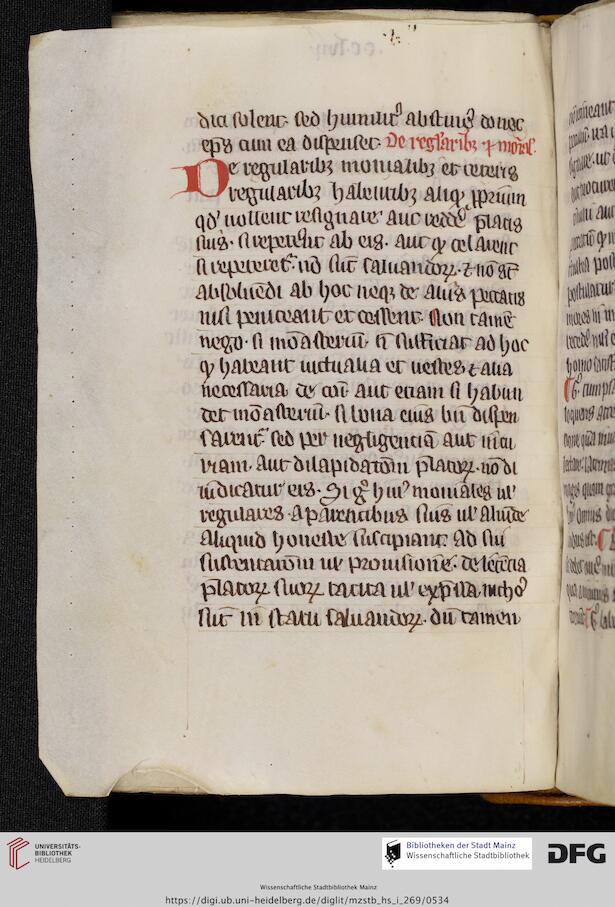 dici solent. sed huiuſmodi abstineꝫ donec
ep̄s cum ea dispenset. De reg̃larib3 ⁊ monial̃.
De regularib3 monialib3 et ceteris
regularib3 habentib3 aliq̃ ꝓprium
qd̓ nollent resignare aut redde᷒ p̄latis
suis. si repeterēt ab eis. aut q celarent
si repeteret᷒. nō sūt saluandoꝝ. ⁊ nō sūt
absoluēdi ab hoc neqꝫ de aliis peccatis
nisi peniteant et cessent. Non tamē
nego. si mōasteriū. nō sufficiat ad hoc
q habeant uictualia et uestes ⁊ alia
necessaria de cōi aut etiam si habun
det mōasteriū. si bona eius bn̄ dispen
sarent᷒. sed per negligenciā aut incu
riam. aut dilapidatōm p̄latoꝝ. nō di
iudicatur eis. Si g̊ hui᷒ moniales ul̓
regulares. a parentibus suis ul̓ aliūde
aliquid honeste suscipiant ad sui
sustentatōm ul̓ prouisionē. de lecēcia
p̄latoꝝ suoꝝ tacita ul̓ exp̄ssa. nicho᷒
sūt in statu saluandoꝝ. dū tamen
UNIVERSITÄTS-
BIBLIOTHEK
HEIDELBERG
Bibliotheken der Stadt Mainz
Wissenschaftliche Stadtbibliothek
DFG
Wissenschaftliche Stadtbibliothek Mainz
https://digi.ub.uni-heidelberg.de/diglit/mzstb_hs_i_269/0534